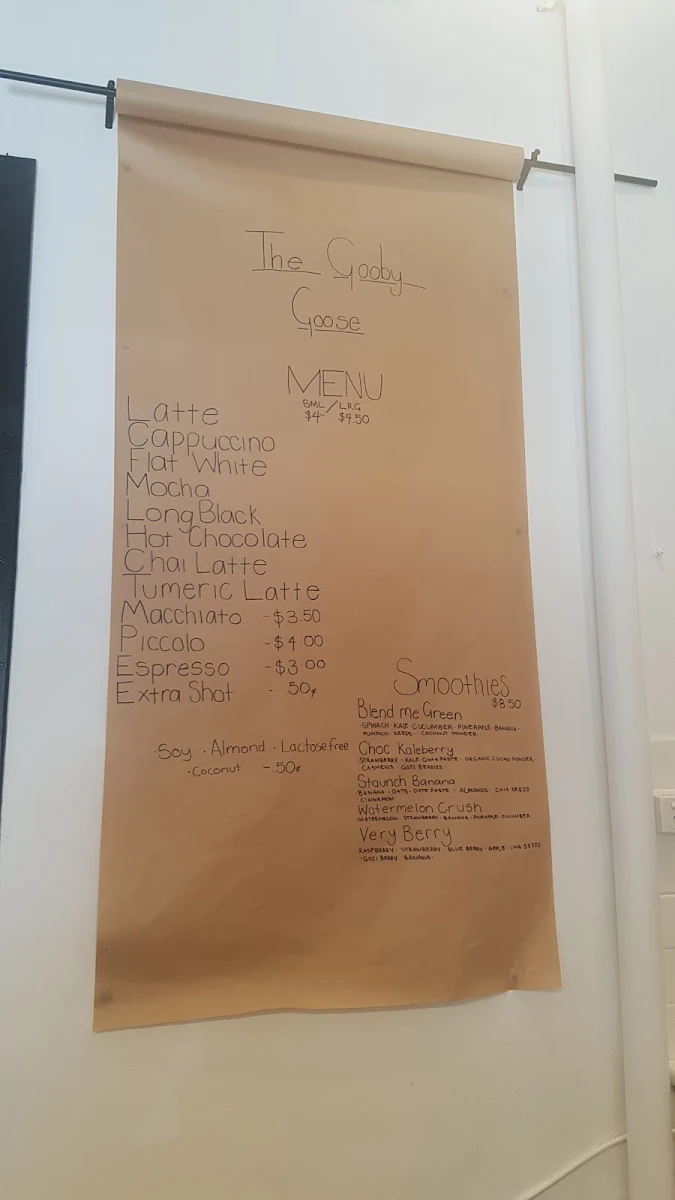 The Gooby
Goose
MENU
SML / LRG
$4 $4.50
Latte
Cappuccino
Flat White
Mocha
Long Black
Hot Chocolate
Chai Latte
Tumeric Latte
Macchiato - $3.50
Piccolo - $4.00
Espresso - $3.00
Extra Shot - .50¢
· Soy · Almond · Lactose free
· Coconut - .50¢
Smoothies
$8.50
Blend me Green
SPINACH · KALE · CUCUMBER · PINEAPPLE · BANANA ·
PUMPKIN SEEDS · COCONUT POWDER ·
Choc Kaleberry
STRAWBERRY · KALE · DATE PASTE · ORGANIC CACAO POWDER ·
CASHEWS · GOJI BERRIES ·
Staunch Banana
BANANA · OATS · DATE PASTE · ALMONDS · CHIA SEEDS
CINNAMON
Watermelon Crush
WATERMELON · BANANA · PINEAPPLE · CUCUMBER
Very Berry
RASPBERRY · STRAWBERRY · BLUE BERRY · APPLE · CHIA SEEDS
· GOJI BERRY · BANANA ·